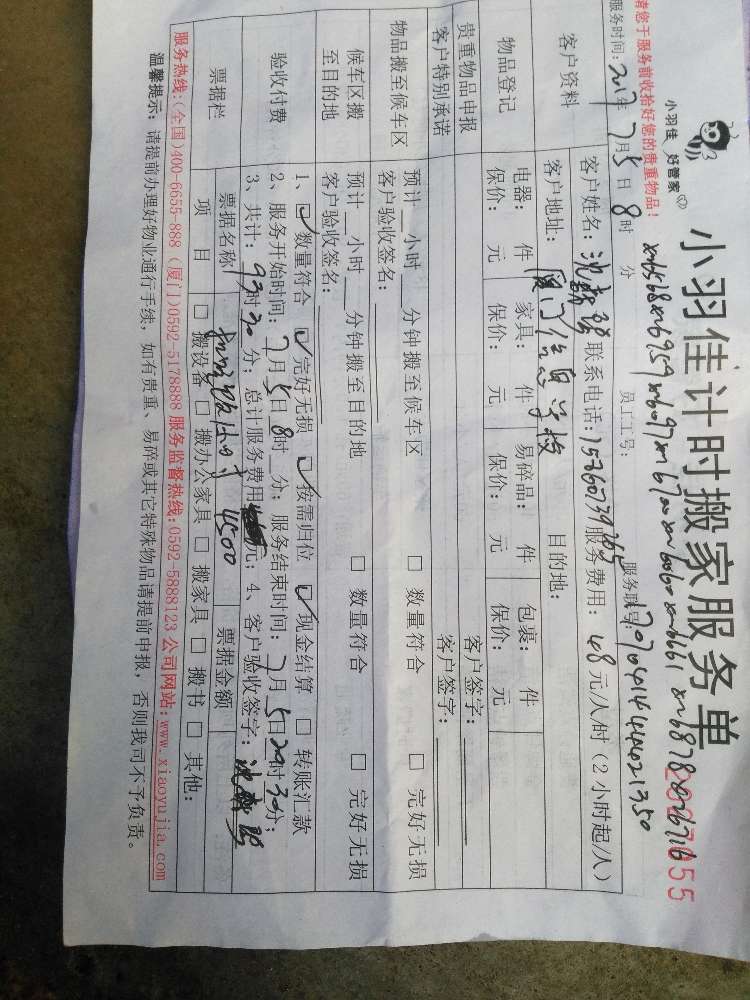 请您于服务前收拾好您的贵重物品!
小羽佳 好管家
小羽佳计时搬家服务单
服务时间: 2017年 7月5日 8时 分
员工工号:
服务联号:
客户资料
客户姓名: 联系电话: 服务费用: 48元/人/时(2小时起/人)
客户地址: 厦门信息学校 目的地:
物品登记
电器: 件 家具: 件 易碎品: 件 包裹: 件
保价: 元 保价: 元 保价: 元 保价: 元
贵重物品申报 客户签字:
客户特别承诺 客户签字:
物品搬至候车区
预计__小时__分钟搬至候车区 □ 数量符合 □ 完好无损
客户验收签名:
候车区搬至目的地
预计__小时__分钟搬至目的地 □ 数量符合 □ 完好无损
客户验收签名:
验收付费
1、☑数量符合 ☑完好无损 ☑按需归位 ☑现金结算 □ 转账汇款
2、服务开始时间: 7月5日8时__分; 服务结束时间: 7月5日20时30分;
3、共计: 93时30分; 总计服务费用 元; 4、客户验收签字:
票据栏
票据名称 4500 票据金额
项 目 □ 搬设备 □ 搬办公家具 □ 搬家具 □ 搬书 □ 其他:
服务热线:(全国)400-6655-888 (厦门)0592-5178888 服务监督热线:0592-5888123 公司网站:www.xiaoyujia.com
温馨提示: 请提前办理好物业通行手续, 如有贵重、易碎或其它特殊物品请提前申报, 否则我司不予负责。